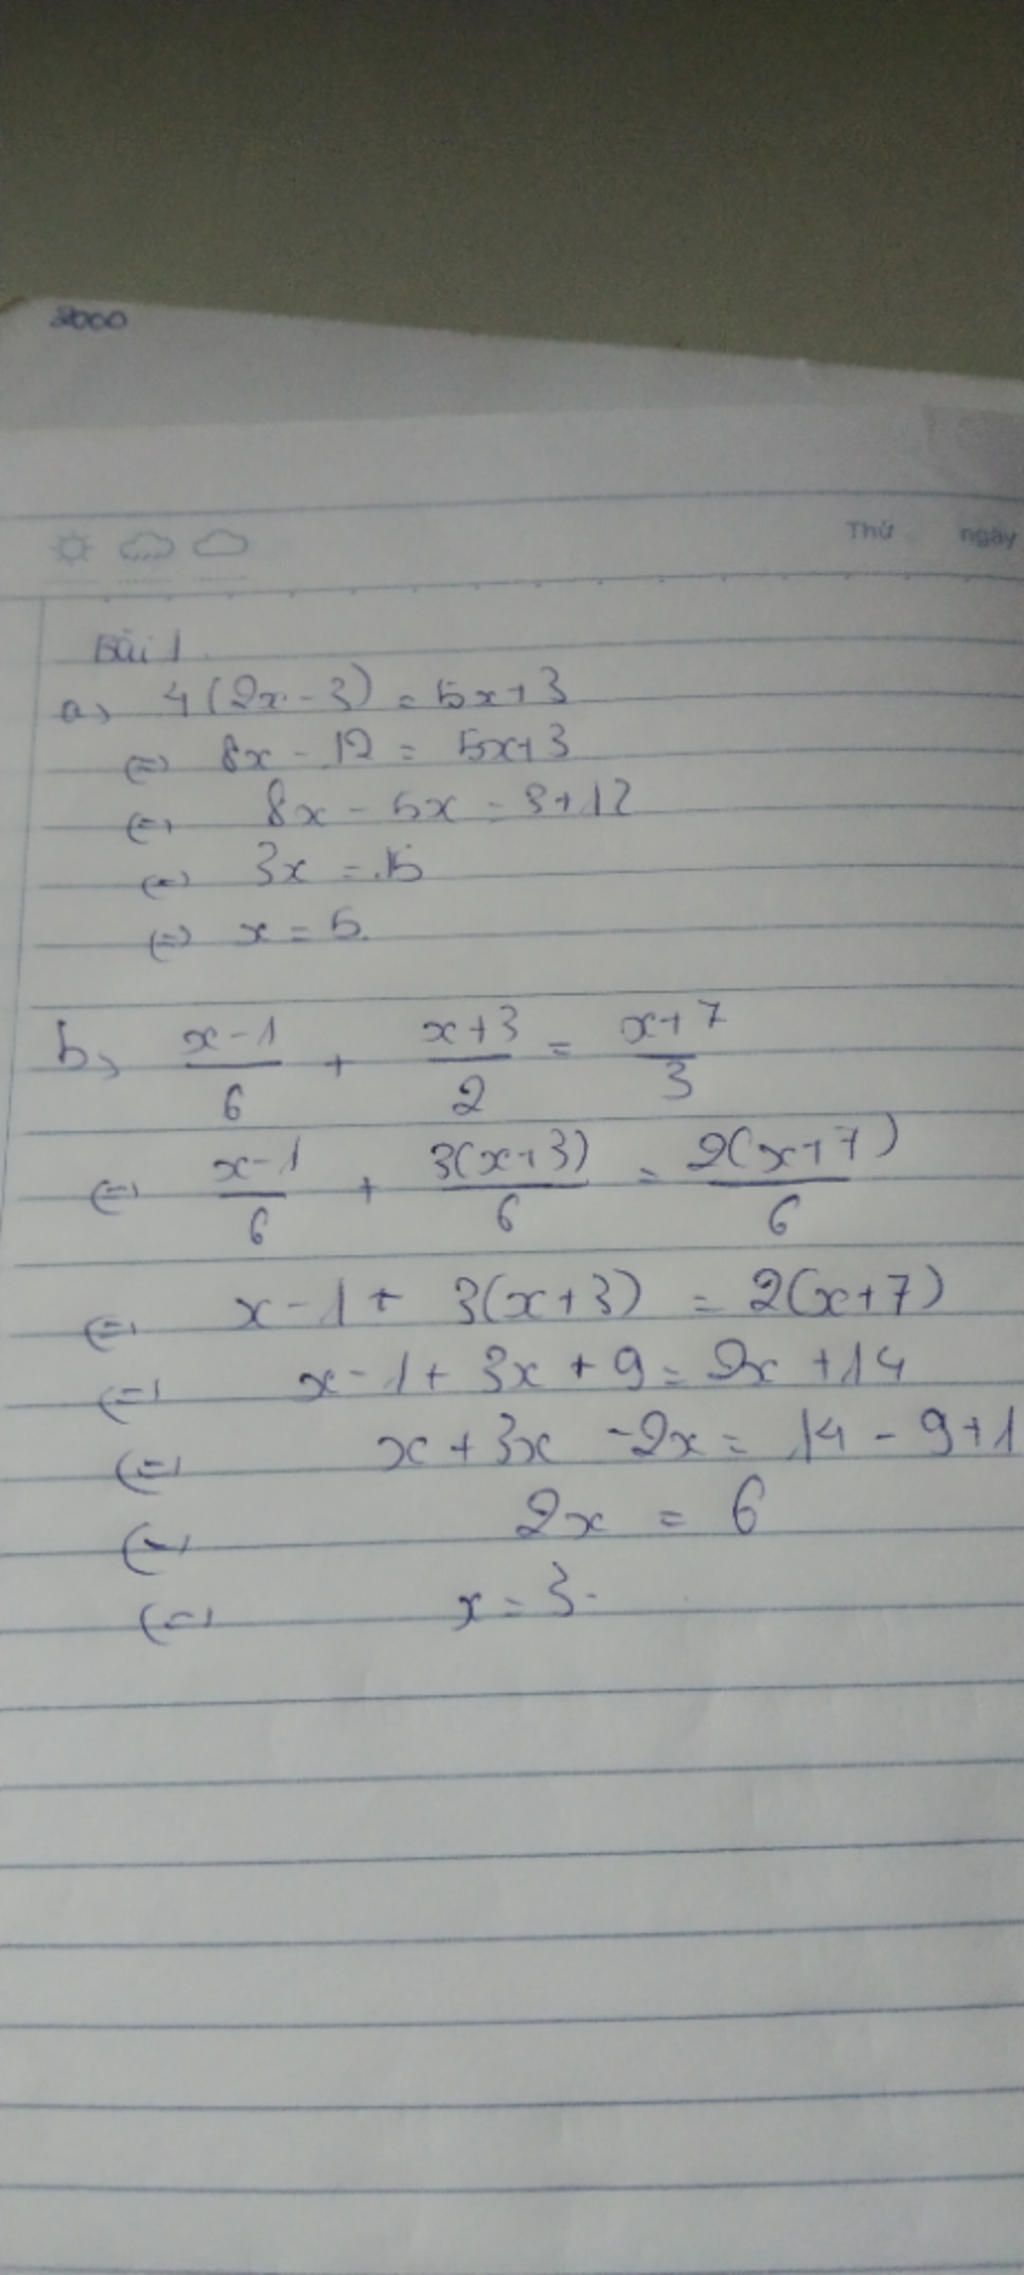 2000
Thứ ngày
Bài 1.
a, 4(2x - 3) = 5x+3
(=) 8x - 12 = 5x+3
(=) 8x - 5x = 3+12
(=) 3x = 15
(=) x = 5.
b, \frac{x-1}{6} + \frac{x+3}{2} = \frac{x+7}{3}
(=) \frac{x-1}{6} + \frac{3(x+3)}{6} = \frac{2(x+7)}{6}
(=) x-1+ 3(x+3) = 2(x+7)
(=) x-1+ 3x + 9 = 2x +14
(=) x+3x -2x = 14 - 9+1
(=) 2x = 6
(=) x = 3.